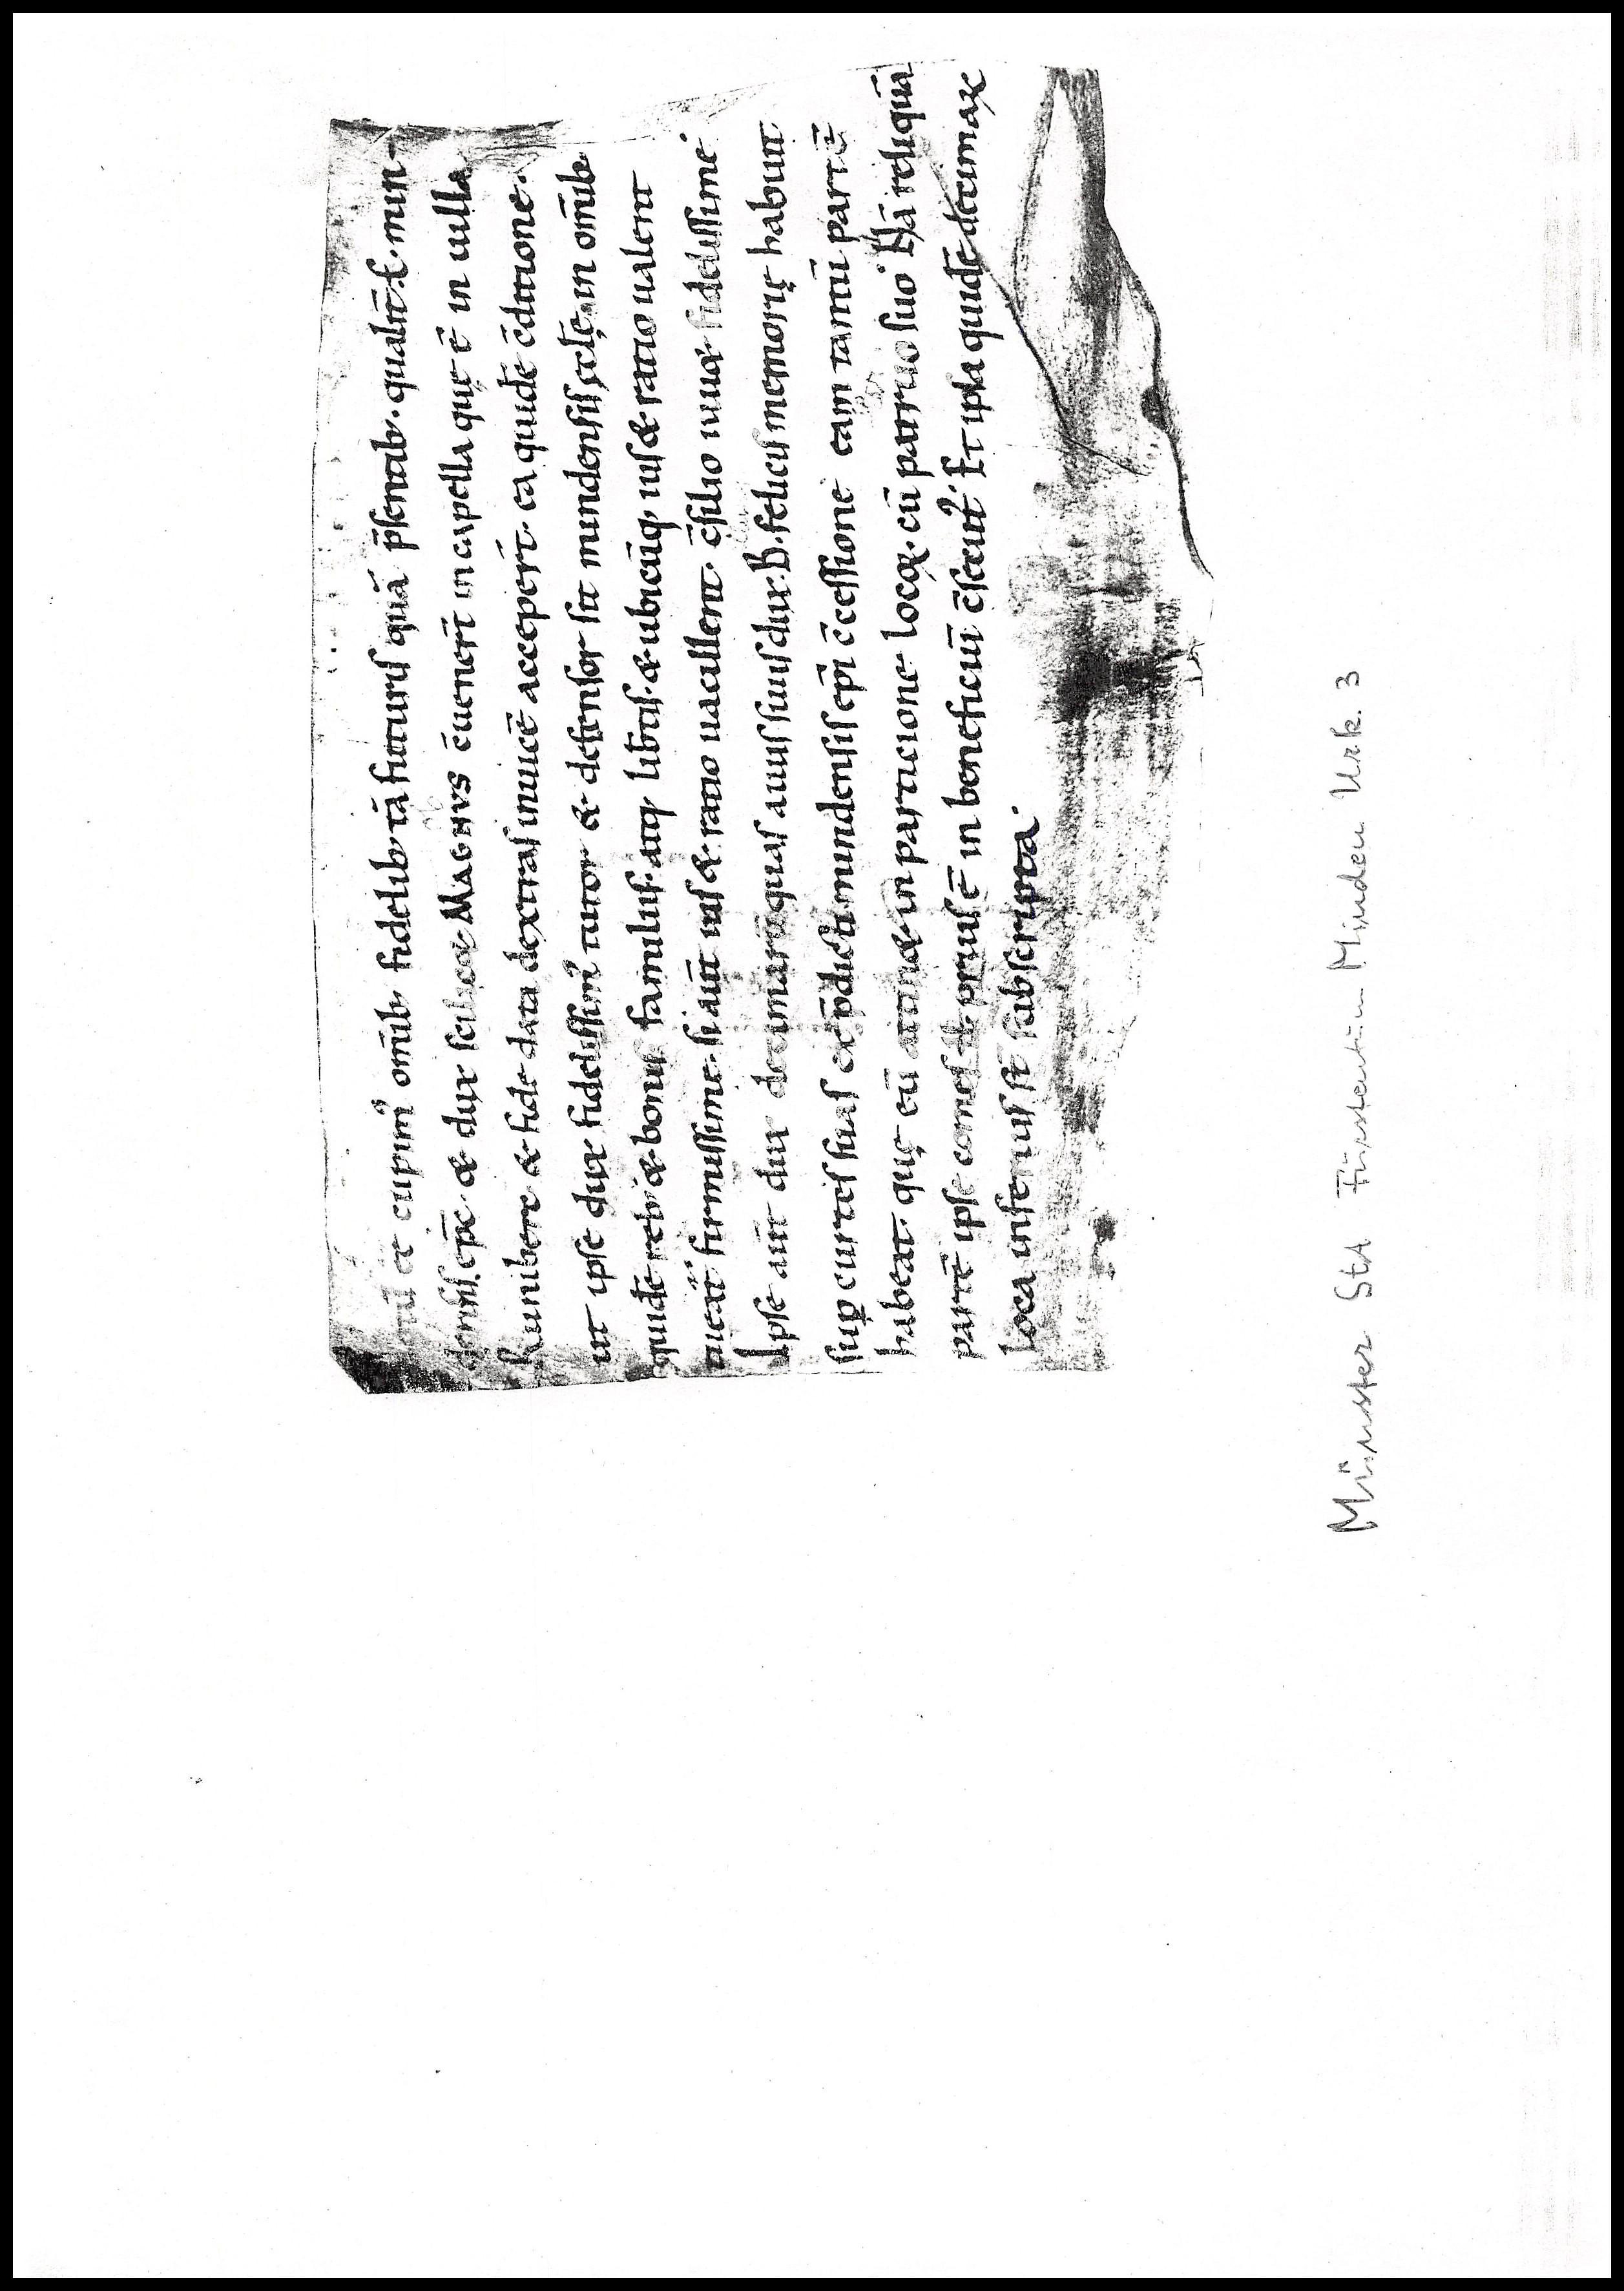 eē cupim᷒ om̄ib; fidelib; tā futuris quā p̄sentib; qualit̄ .E. min-
densis ep̄c & dux Magnvs c̄uener̄t in capella quę ē in uilla
kunibere & fide data dextras inuicē acceper̄t. ea quidē c̄ditione.
ut ipse dux fidelissim᷒ tutor & defensor sit mindensis ęcclę in om̄ib;
quidē reb; & bonis famulis atq; lib̄tis & ubicūq; ius & ratio ualent
firmissime. si aūt ius & ratio uacillent. c̄silio iuuet fidelissime.
Ipse aūt dux decimarū quas auus suus dux .B. felicis memorię habuit
sup curtes suas ex p̄dicti mindensis ep̄i c̄cessione eam tantū partē
habeat. quę eū in particione locoꝝ. cū patruo suo. Nā reliquā
partē ipse comes prius ē in beneficiū c̄secut᷒. Et ipsa quidē decimaꝝ
loca inferius st̄ subscripta.
Münster StA Fürstentum Minden Urk. 3